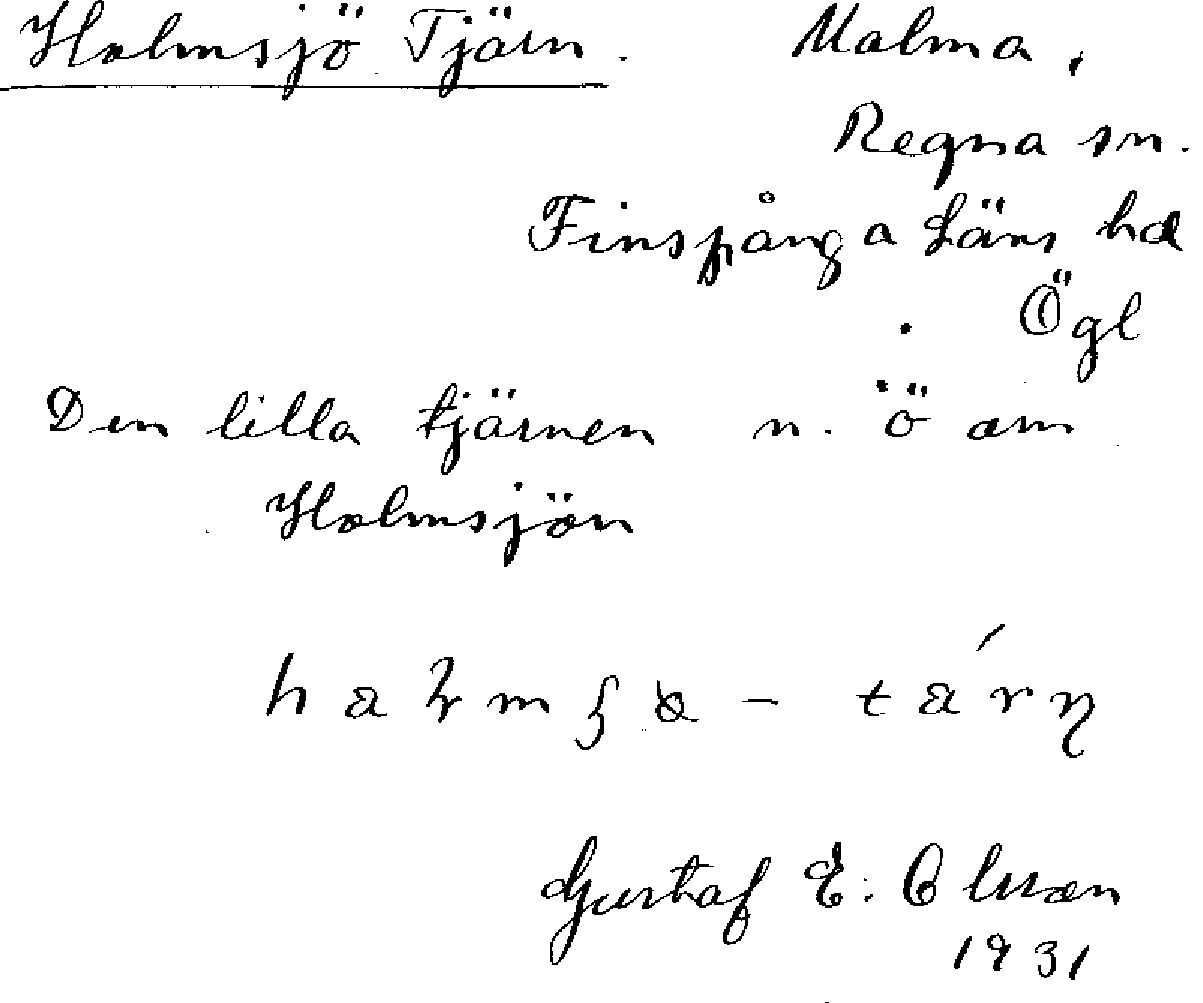 Holmsjö Tjärn. Malma,
Regna sn.
Finspånga Läns hd
Ögl
Den lilla tjärnen n. ö om
Holmsjön
Gustaf E. Olsson
1931